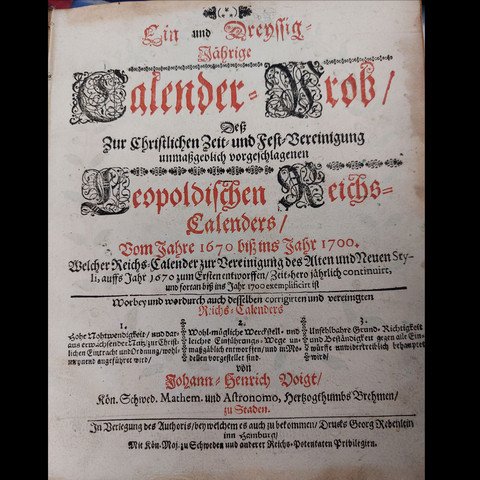 Ein und Dreyssig-
Jährige
Calender-Prob/
Deß
Zur Christlichen Zeit- und Fest-Vereinigung
unmaßgeblich vorgeschlagenen
Leopoldischen Reichs-
Calenders/
Vom Jahre 1670 biß ins Jahr 1700.
Welcher Reichs-Calender zur Vereinigung des Alten und Neuen Sty-
li, auffs Jahr 1670 zum Ersten entworffen/ Zeit-hero jährlich continuirt,
und fortan biß ins Jahr 1700 exemplificirt ist
Worbey und wordurch auch desselben corrigirten und vereinigten
Reichs-Calenders
1.
Hohe Nohtwendigkeit/ und dar-
aus erwachsender Nutz/ zur Christ-
lichen Eintracht und Ordnung/ wohl-
angeführet wird/
2.
Wohl-mügliche Werckstell- und
leichte Einführungs-Wege un-
maßgäblich entworffen/ und im Mo-
dellen vorgestellet sind
3.
Unfehlbahre Grund-Richtigkeit
und Beständigkeit gegen alle Ein-
würffe unwiedertreiblich behauptet
wird/
von
Johann-Henrich Voigt/
Kön. Schwed. Mathem. und Astronomo, Hertzogthumbs Brehmen/
zu Staden.
In Verlegung des Authoris/ bey welchem es auch zu bekommen/ Drucks Georg Rebenlein
inn Hamburg/
Mit Kön. Maj. zu Schweden und anderer Reichs-Potentaten Privilegien.